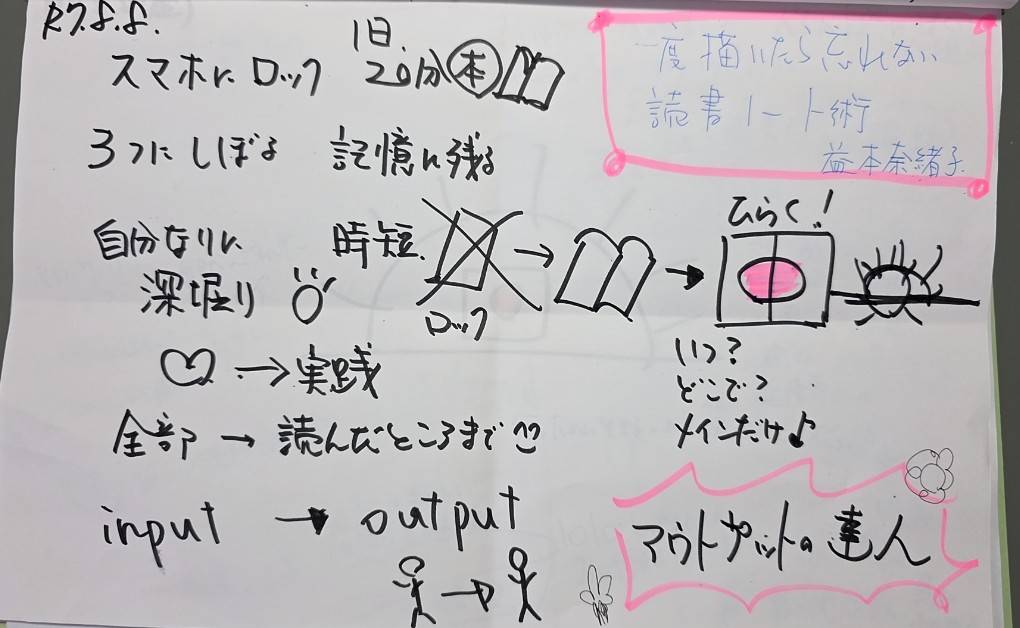 R7.8.8.
スマホに ロック
1日.
20分 本
一度描いたら忘れない
読書ノート術
益本奈緒子
3つにしぼる 記憶に残る
自分なりに
深堀り
時短.
ロック
ひらく!
→実践
いつ?
どこで?
メインだけ♪
全部 → 読んだところまで
input → output
アウトプットの達人